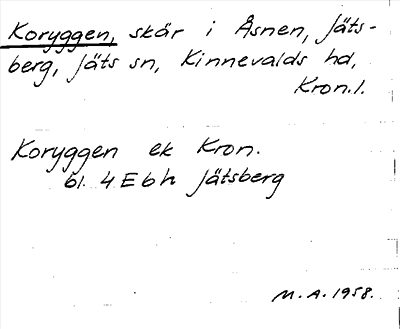 Koryggen, skär i Åsnen, Jäts-
berg, Jäts sn, Kinnevalds hd,
Kron.l.
Koryggen ek Kron.
bl. 4 E b h Jätsberg
M.A. 1958.